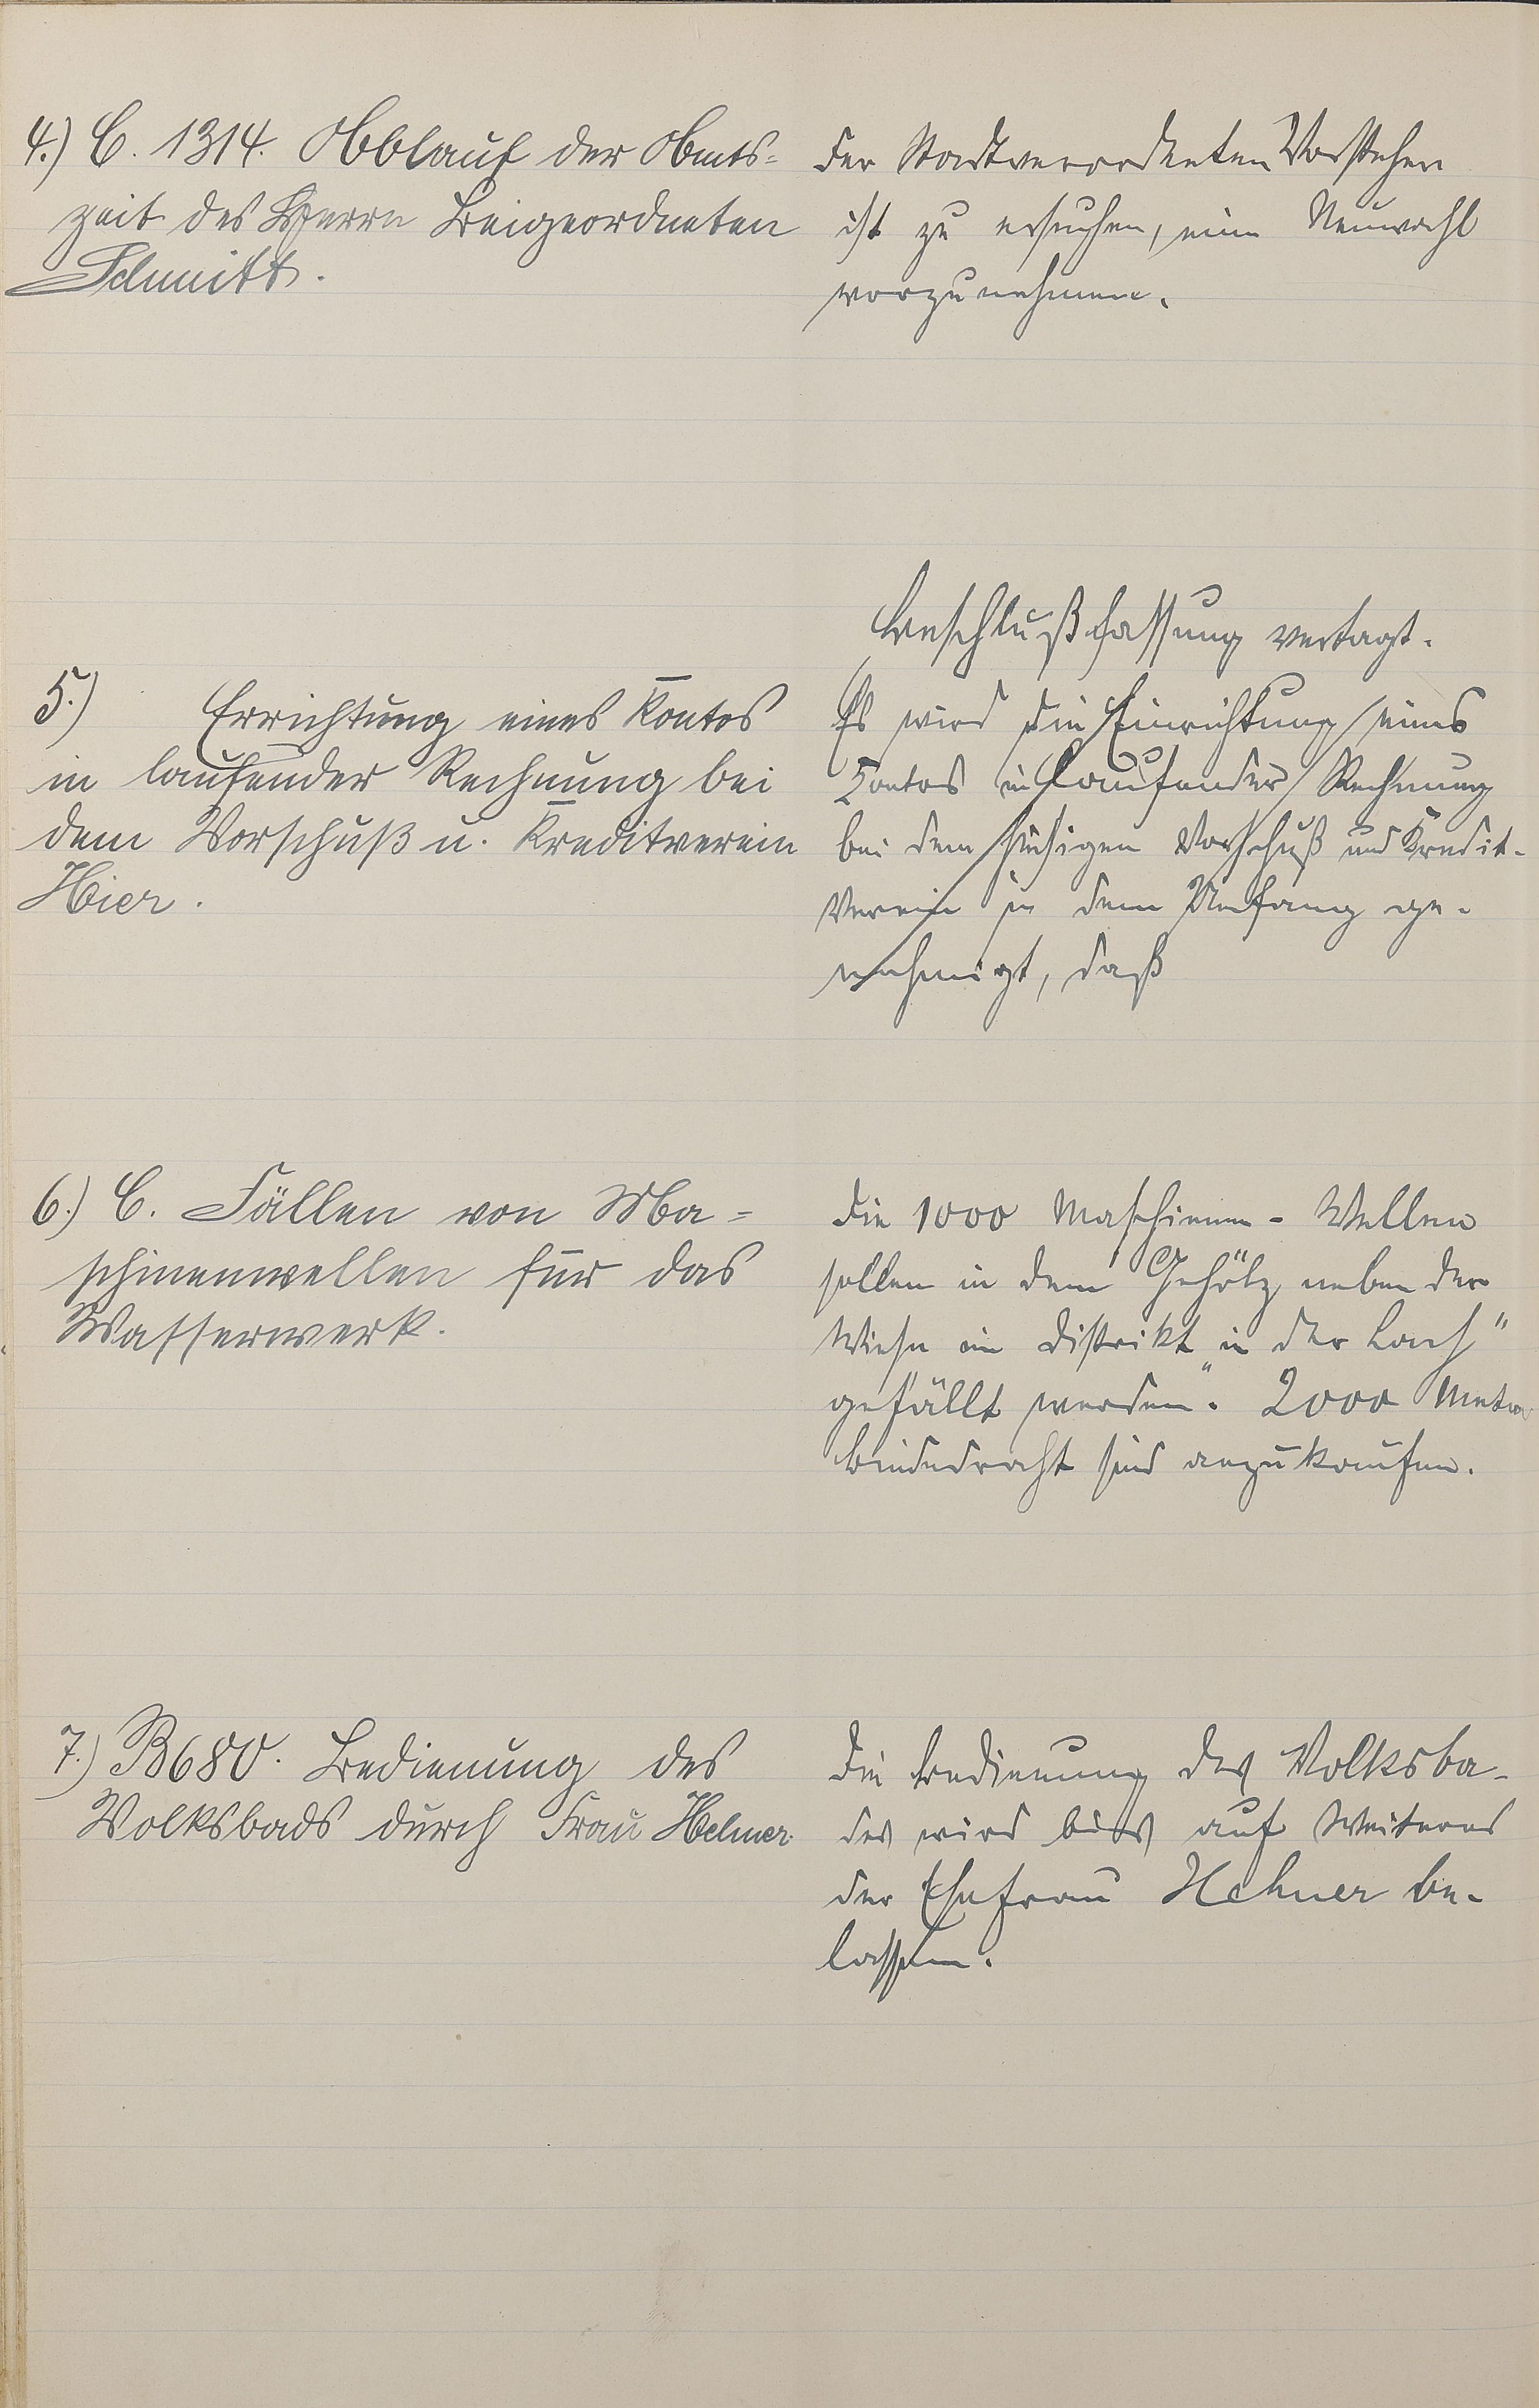 4.) C. 1314. Ablauf der Amts=
zeit des Herrn Beigeordneten
Schmitt.
Der Stadtverordneten Vorsteher
ist zu ersuchen, eine Neuwahl
vorzunehmen.
5.) Errichtung eines Kontos
in laufender Rechnung bei
dem Vorschuß u. Kreditverein
Hier.
Beschlußfassung vertagt.
Es wird die Einrichtung eines
Kontos in laufender Rechnung
bei dem hiesigen Vorschuß und Kredit-
Verein in dem Umfang ge-
nehmigt, daß
6.) C. Fällen von Ma=
schinenwellen für das
Wasserwerk.
Die 1000 Maschinen-Wellen
sollen in dem Gehölz neben der
Wiese im Distrikt „in der Lach"
gefällt werden. 2000 Meter
Bindedraht sind anzukaufen.
7.) B 680. Bedienung des
Volksbads durch Frau Hehner.
Die Bedienung des Volksba-
des wird bis auf Weiteres
der Ehefrau Hehner be-
lassen.